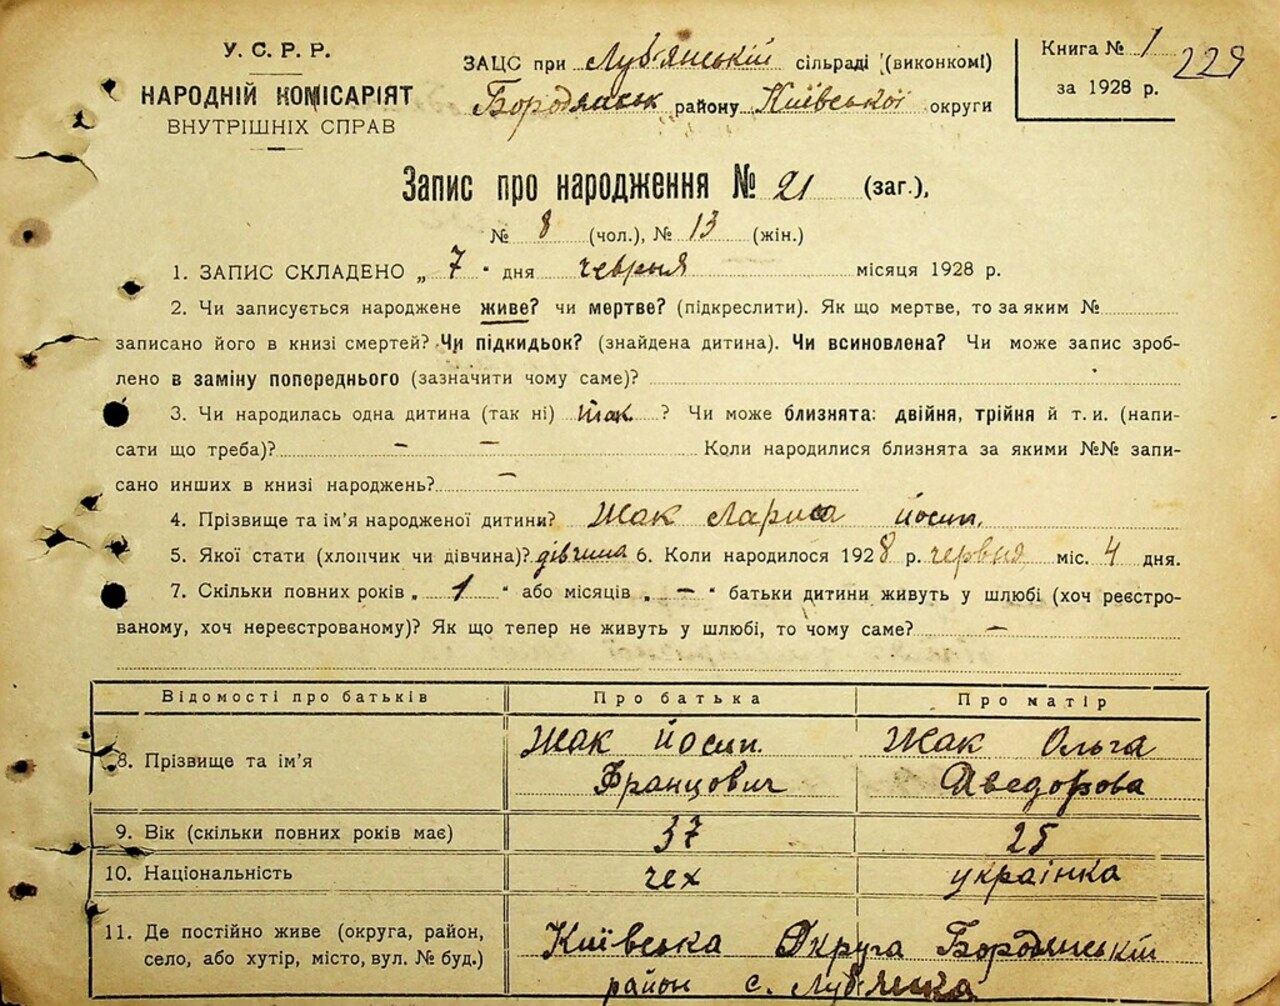 У. С. Р. Р.
НАРОДНІЙ КОМІСАРІЯТ
ВНУТРІШНІХ СПРАВ
ЗАЦС при Луб'янській сільраді (виконкомі)
Бородянськ району Київської округи
Книга № 1
за 1928 р.
229
Запис про народження № 21 (заг.),
№ 8 (чол.), № 13 (жін.)
1. ЗАПИС СКЛАДЕНО „ 7 " дня червня місяця 1928 р.
2. Чи записується народжене живе? чи мертве? (підкреслити). Як що мертве, то за яким №
записано його в книзі смертей? Чи підкидьок? (знайдена дитина). Чи всиновлена? Чи може запис зроб-
лено в заміну попереднього (зазначити чому саме)?
3. Чи народилась одна дитина (так ні) так ? Чи може близнята: двійня, трійня й т. и. (напи-
сати що треба)? – – Коли народилися близнята за якими №№ запи-
сано инших в книзі народжень? –
4. Прізвище та ім'я народженої дитини? Жак Лариса Йосип.
5. Якої стати (хлопчик чи дівчина)? дівчина 6. Коли народилося 1928 р. червня міс. 4 дня.
7. Скільки повних років „ 1 " або місяців „ – " батьки дитини живуть у шлюбі (хоч реєстро-
ваному, хоч нереєстрованому)? Як що тепер не живуть у шлюбі, то чому саме? –
Відомості про батьків Про батька Про матір
8. Прізвище та ім'я Жак Йосип. Жак Ольга
Францович Хведорова
9. Вік (скільки повних років має) 37 25
10. Національність чех українка
11. Де постійно живе (округа, район,
село, або хутір, місто, вул. № буд.)
Київська Округа Бородянській
район с. Луб'янка